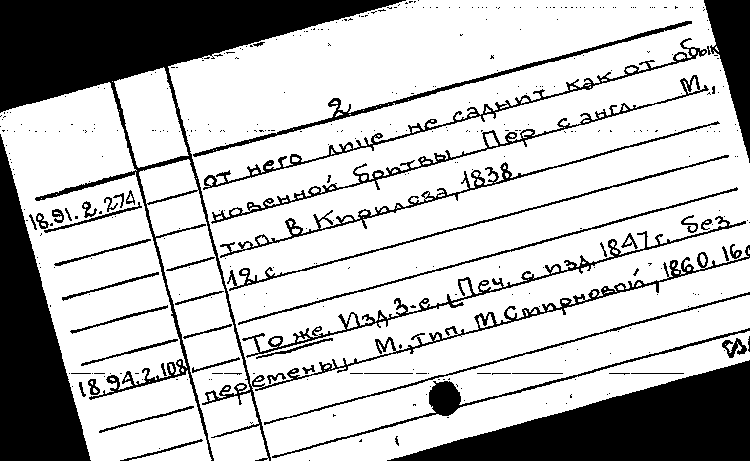 2
от него лице не саднит как от обык
18.91.2.274. новенной бритвы. Пер. с англ. М.,
тип. В. Кирилова, 1838.
12 с.
То же. Изд. 3-е. [Печ. с изд. 1847 г. без
18.94.2.108 перемены. М., тип. М. Смирновой, 1860. 16с